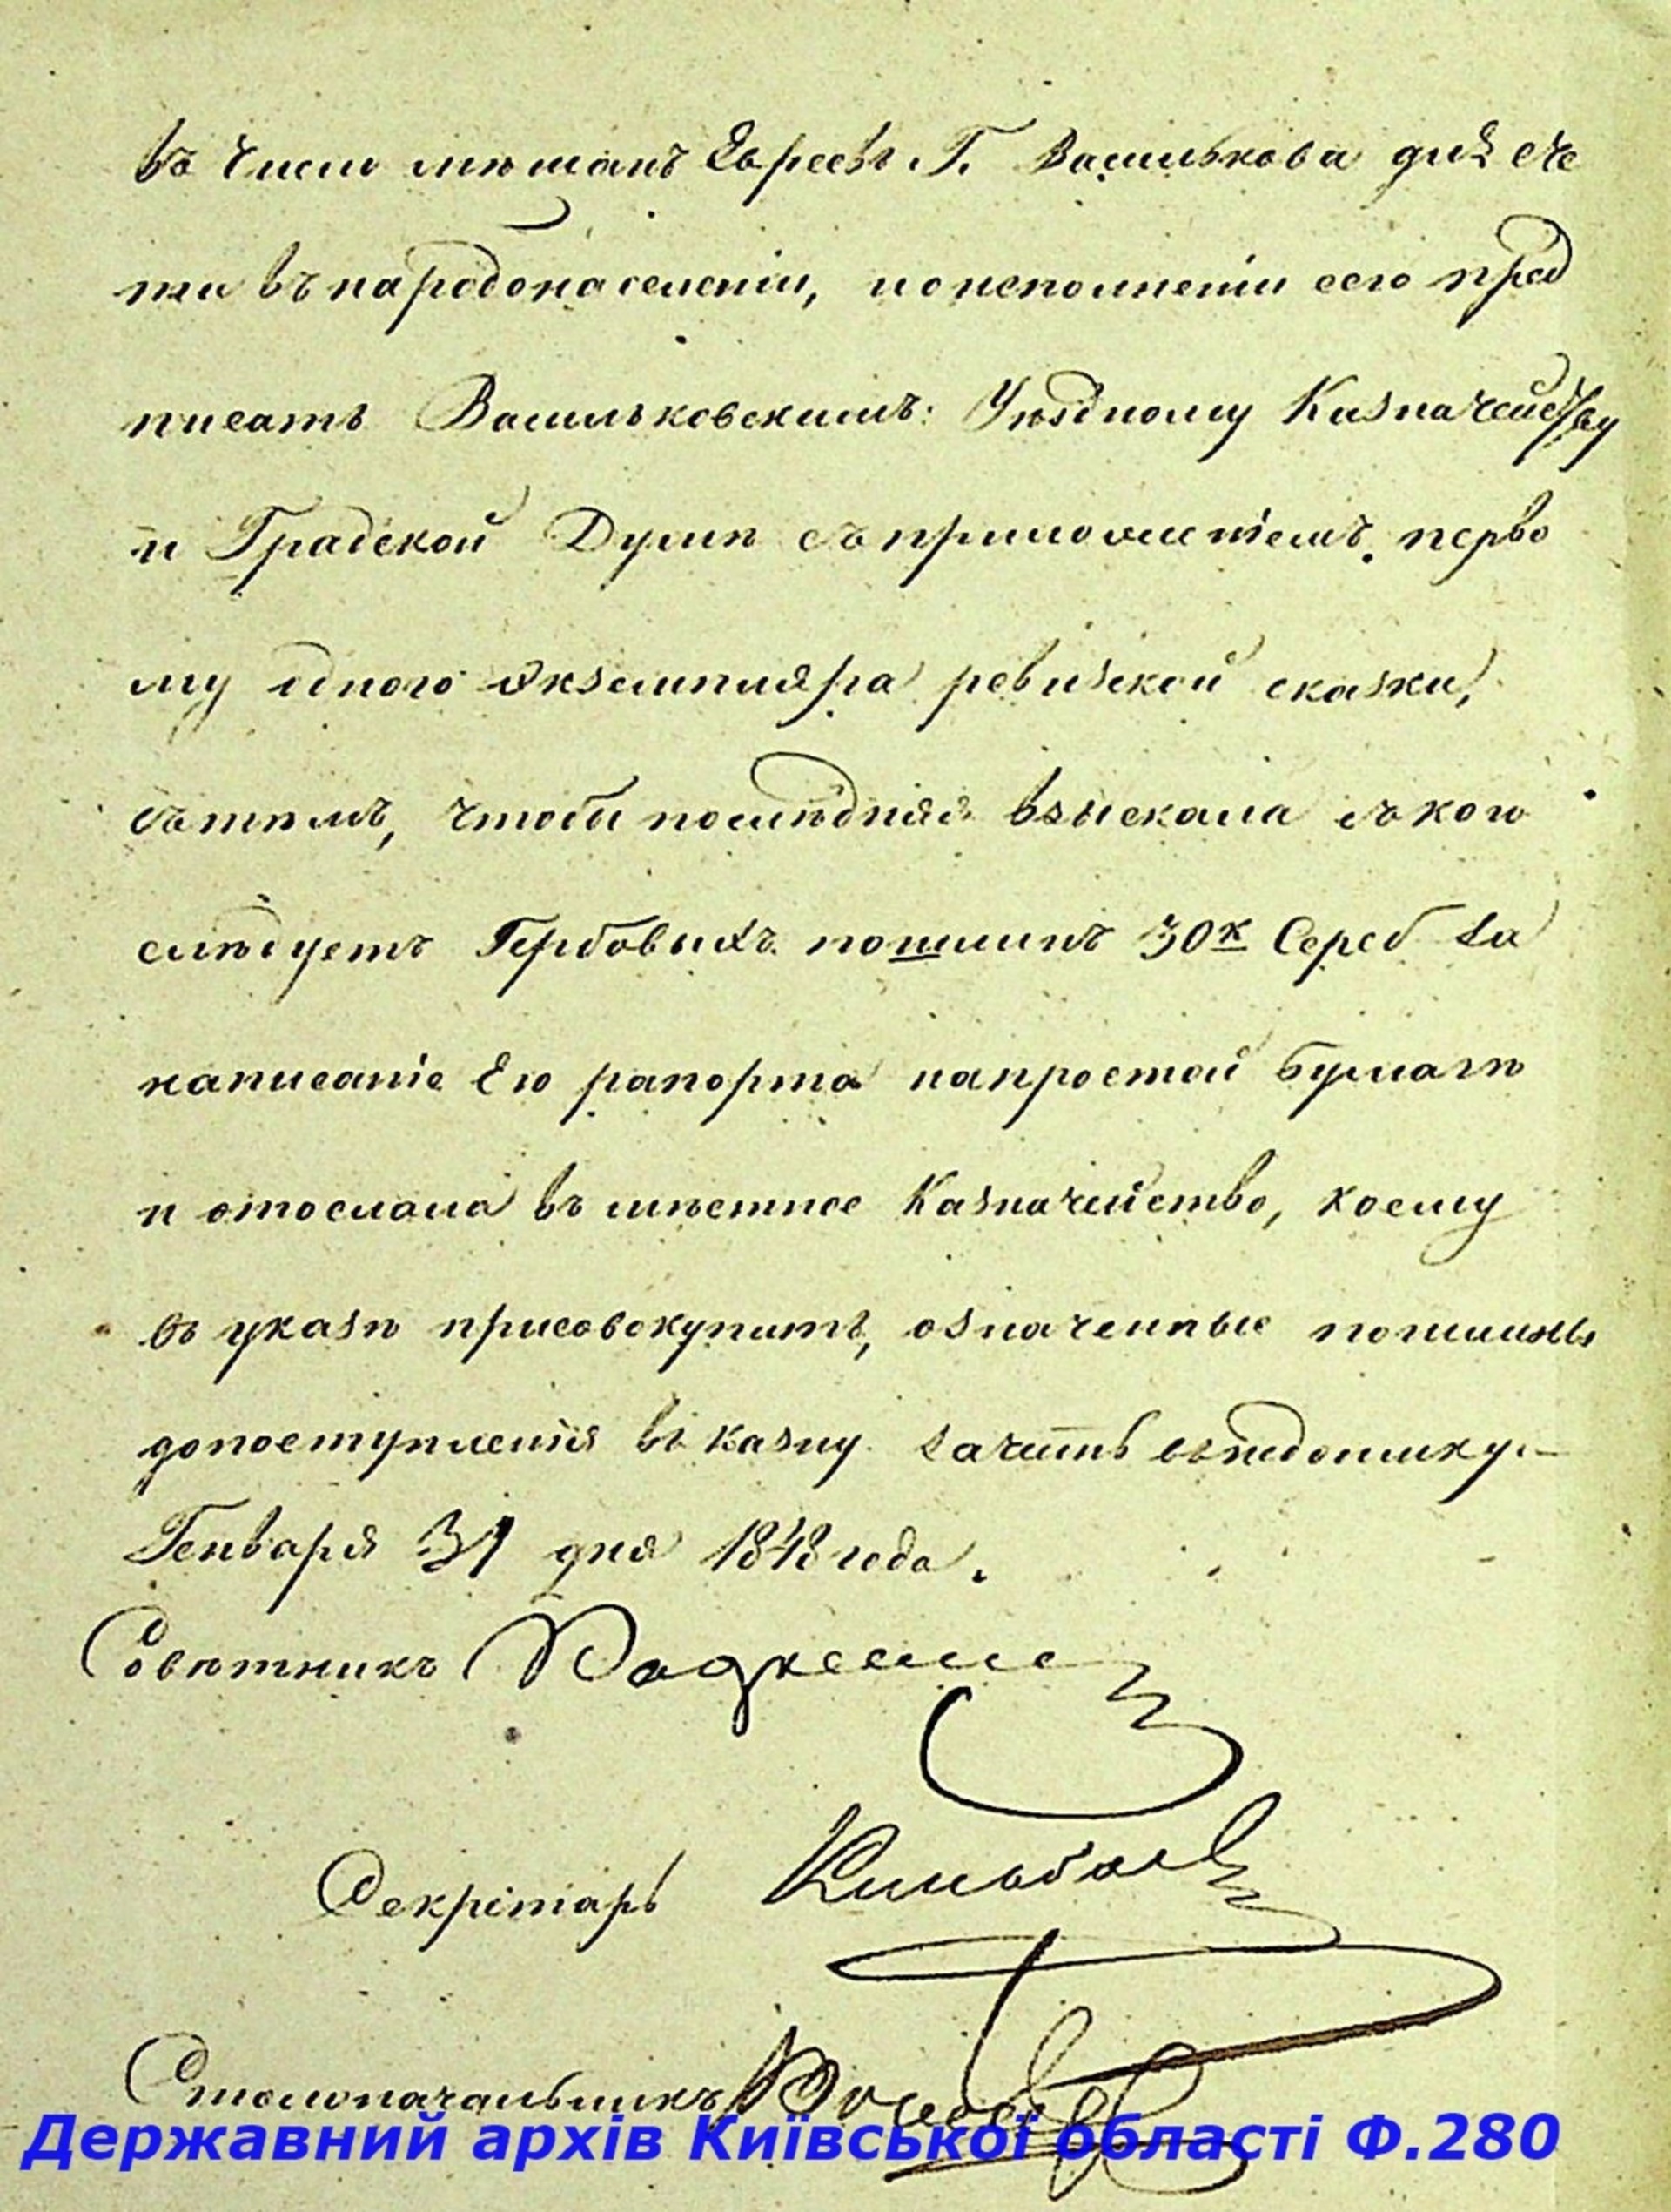 въ числѣ мѣщанъ Евреевъ Г. Василькова для сче
та въ народонаселеніи, по исполненіи сего пред
писать Васильковскимъ: Уѣздному Казначейству
и Градской Думѣ съ приложеніемъ перво
му одного экземпляра ревизской сказки,
съ тѣмъ, чтобы послѣдняя взыскала съ кого
слѣдуетъ Гербовыхъ пошлинъ 30к Сереб за
написаніе Ею рапорта на простой бумагѣ
и отослала въ мѣстное Казначейство, коему
въ указѣ присовокупить, означенные пошлины
до поступленія въ казну зачесть въ недоимку.
Генваря 31 дня 1848 года.
Совѣтникъ
Секретарь
Столоначальникъ
Державний архів Київської області Ф.280